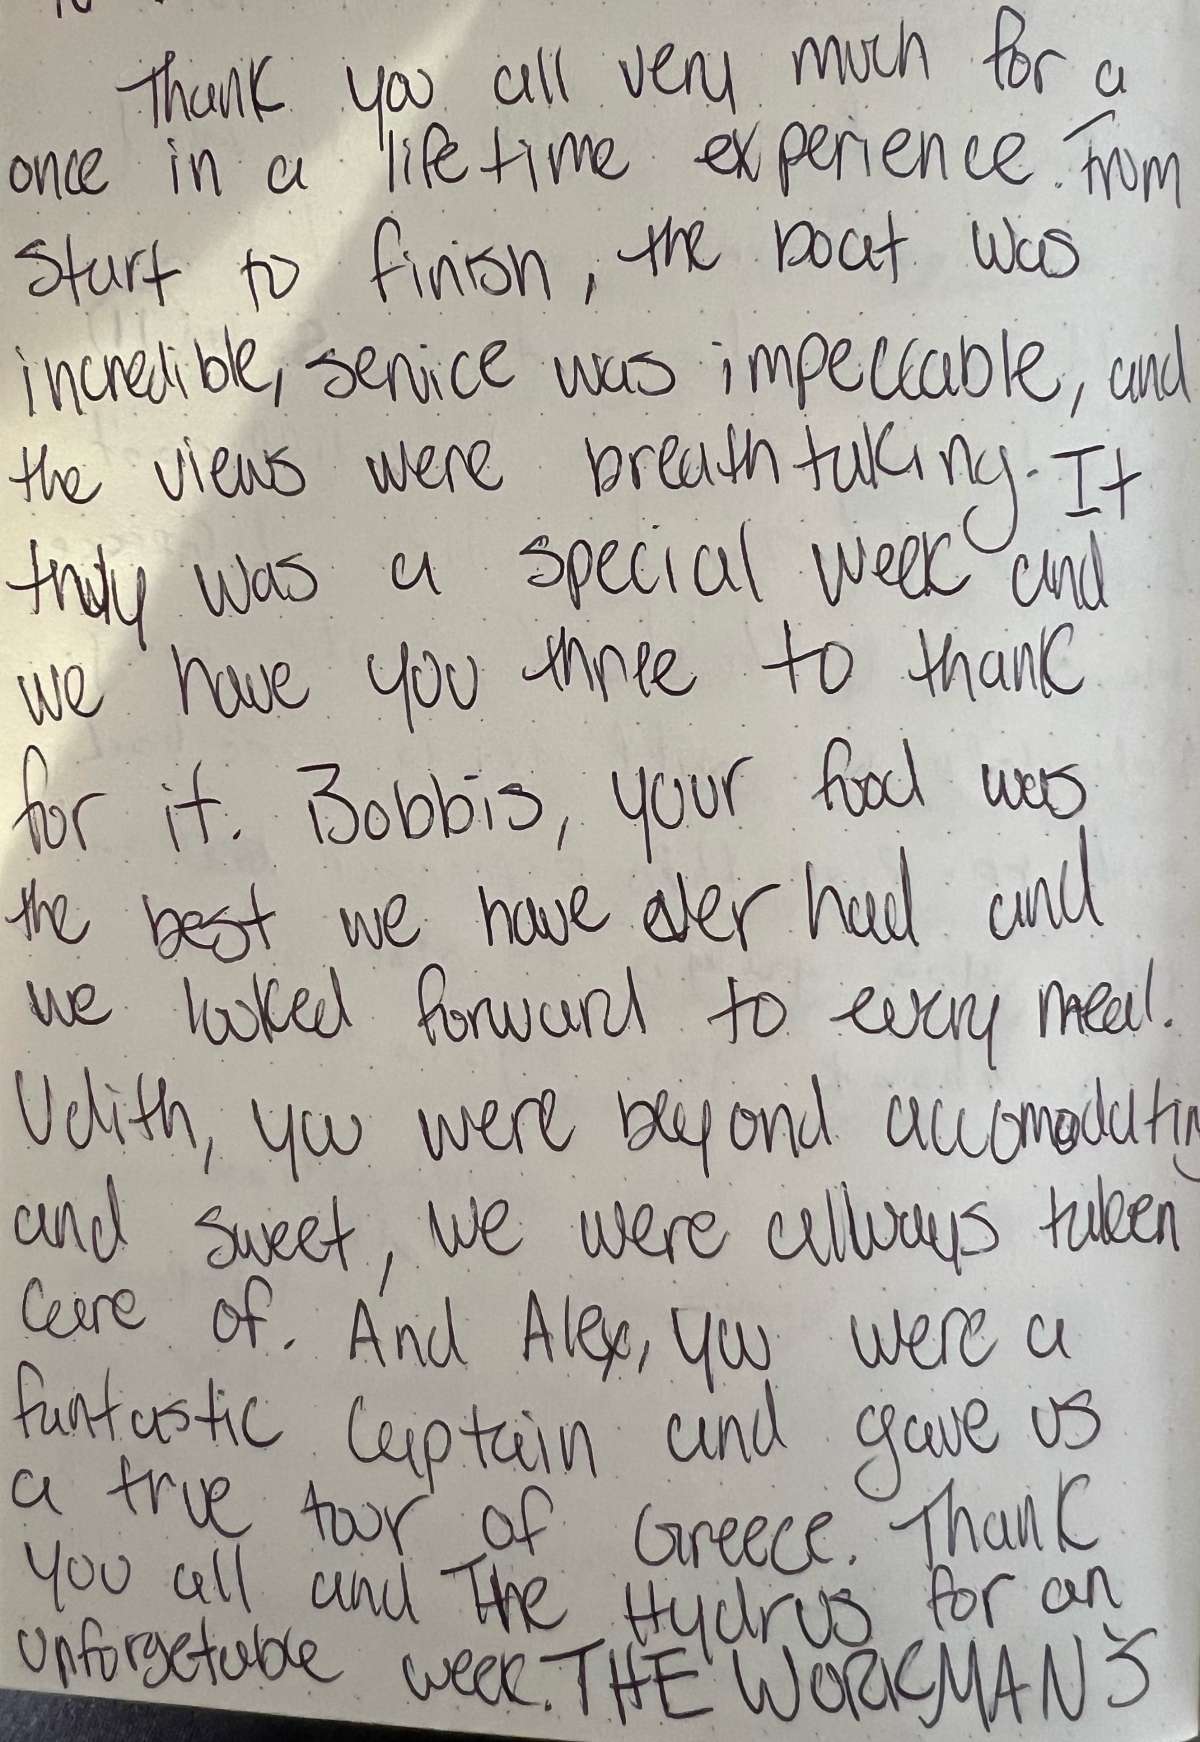 Thank you all very much for a
once in a lifetime experience. From
start to finish, the boat was
incredible, service was impeccable, and
the views were breathtaking. It
truly was a special week and
we have you three to thank
for it. Bobbis, your food was
the best we have ever had and
we looked forward to every meal.
Udith, you were beyond accomodating
and sweet, we were allways taken
care of. And Alex, you were a
fantastic captain and gave us
a true tour of Greece. Thank
you all and The Hydrus for an
unforgetable week. THE WORKMAN'S